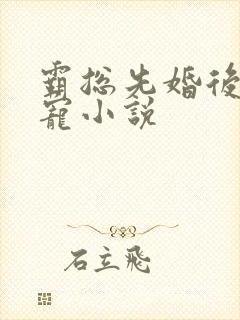 霸总先婚後
寵小説
石立飛